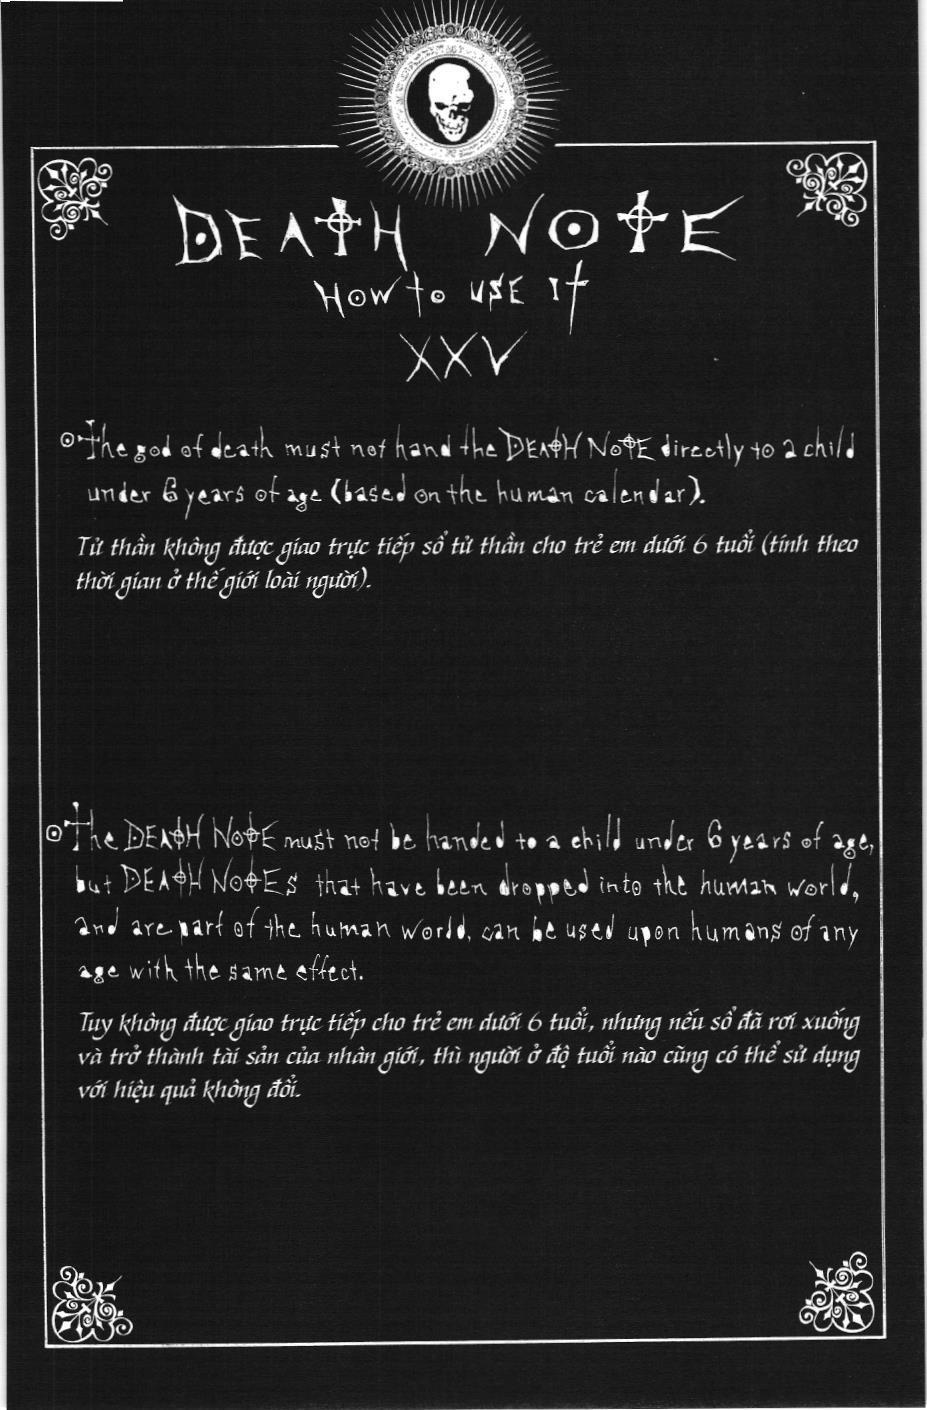 DEATH NOTE
HOW to USE It
XXV
The god of death must not hand the DEATH NOTE directly to a child
under 6 years of age (based on the human calendar).
Tử thần không được giao trực tiếp sổ tử thần cho trẻ em dưới 6 tuổi (tính theo
thời gian ở thế giới loài người).
The DEATH NOTE must not be handed to a child under 6 years of age,
but DEATH NOTEs that have been dropped into the human world,
and are part of the human world, can be used upon humans of any
age with the same effect.
Tuy không được giao trực tiếp cho trẻ em dưới 6 tuổi, nhưng nếu sổ đã rơi xuống
và trở thành tài sản của nhân giới, thì người ở độ tuổi nào cũng có thể sử dụng
với hiệu quả không đổi.